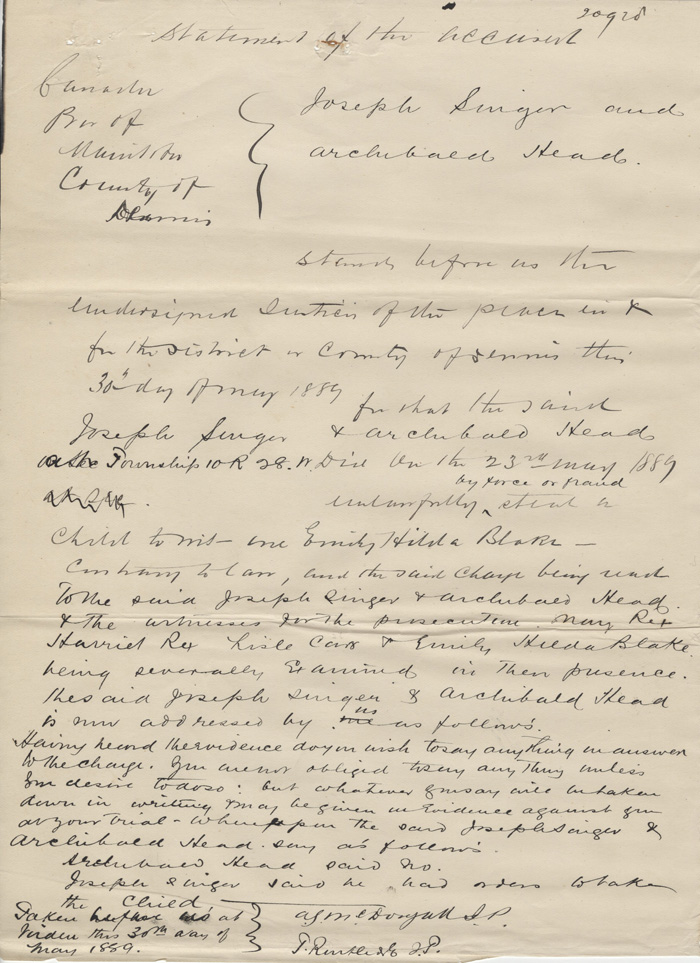 20928
Statement of the accused
Canada
Prov of
Manitoba
County of
Dennis
Joseph Singer and
Archibald Head.
Stands before us the
undersigned Justices of the peace in &
for the District or County of Dennis this
30th day of may 1889
for that the said
Joseph Singer & Archibald Head
at the Township 10 R 28. W. Did on the 23rd may 1889
by force or fraud
unlawfully ‸ steal a
Child to wit - one Emily Hilda Blake -
Contrary to law, and the said charge being read
To the said Joseph Singer & Archibald Head.
& the witnesses for the prosecution. Mary Rex
Harriet Rex Lisle Carr & Emily Hilda Blake.
being severally Examined in their presence.
the said Joseph Singer & Archibald Head
is now addressed by us as follows.
Having heard the evidence do you wish to say anything in answer
to the charge. You are not obliged to say any thing unless
you desire to do so: but whatever you say will be taken
down in writing & may be given in Evidence against you
at your trial - whereupon the said Joseph Singer &
Archibald Head. say as follows.
Archibald Head said No.
Joseph Singer said he had orders to take
the child
Taken before us at
Virden this 30th day of
May 1889.
J.P.
J.P.